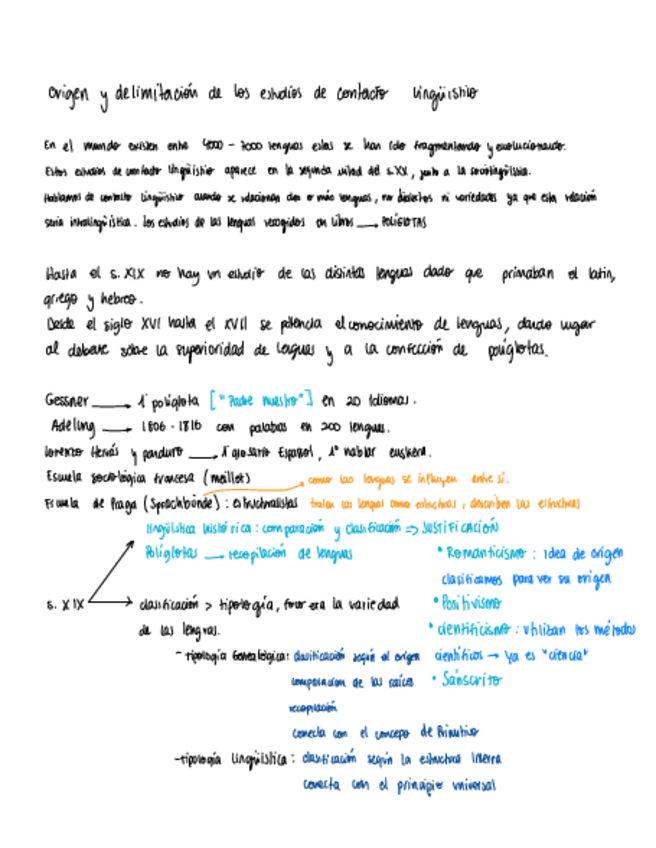 Origen y delimitación de los estudios de contacto lingüístio
En el mundo existen entre 4000 - 7000 lenguas estas se han ido fragmentando y evolucionando.
Estos estudios de contacto lingüístio aparece en la segunda mitad del s.XX, junto a la sociolingüística.
Hablamos de contacto lingüístio cuando se relacionan dos o más lenguas, no dialectos ni variedades ya que esta relación
sería intralingüística. Los estudios de las lenguas recogidos en libros → POLÍGLOTAS
Hasta el s. XIX no hay un estudio de las distintas lenguas dado que primaban el latín,
griego y hebreo.
Desde el siglo XVI hasta el XVII se potencia el conocimiento de lenguas, dando lugar
al debate sobre la superioridad de lenguas y a la confección de políglotas.
Gessner → 1ª políglota ["Padre nuestro"] en 20 idiomas.
Adelung → 1806 - 1816 con palabras en 200 lenguas.
Lorenzo Hervás y panduro → 1º glosario Español, 1º hablar euskera.
Escuela sociológica francesa (meillet) → como las lenguas se influyen entre sí.
Escuela de Praga (Sprachbünde) : estructuralistas tratan las lenguas como estructuras, describen las estructuras
lingüística histórica : comparación y clasificación => JUSTIFICACIÓN
Políglotas → recopilación de lenguas
• Romanticismo : idea de origen
clasificamos para ver su origen
s. XIX → clasificación > tipología, foco era la variedad
de las lenguas.
• Positivismo
• cientificismo : utilizan los métodos
científicos → ya es "ciencia"
• Sánscrito
- tipología Genealógica: clasificación según el origen
comparación de las raíces
recopilación
conecta con el concepto de Primitivo
- tipología Lingüística : clasificación según la estructura interna
conecta con el principio universal